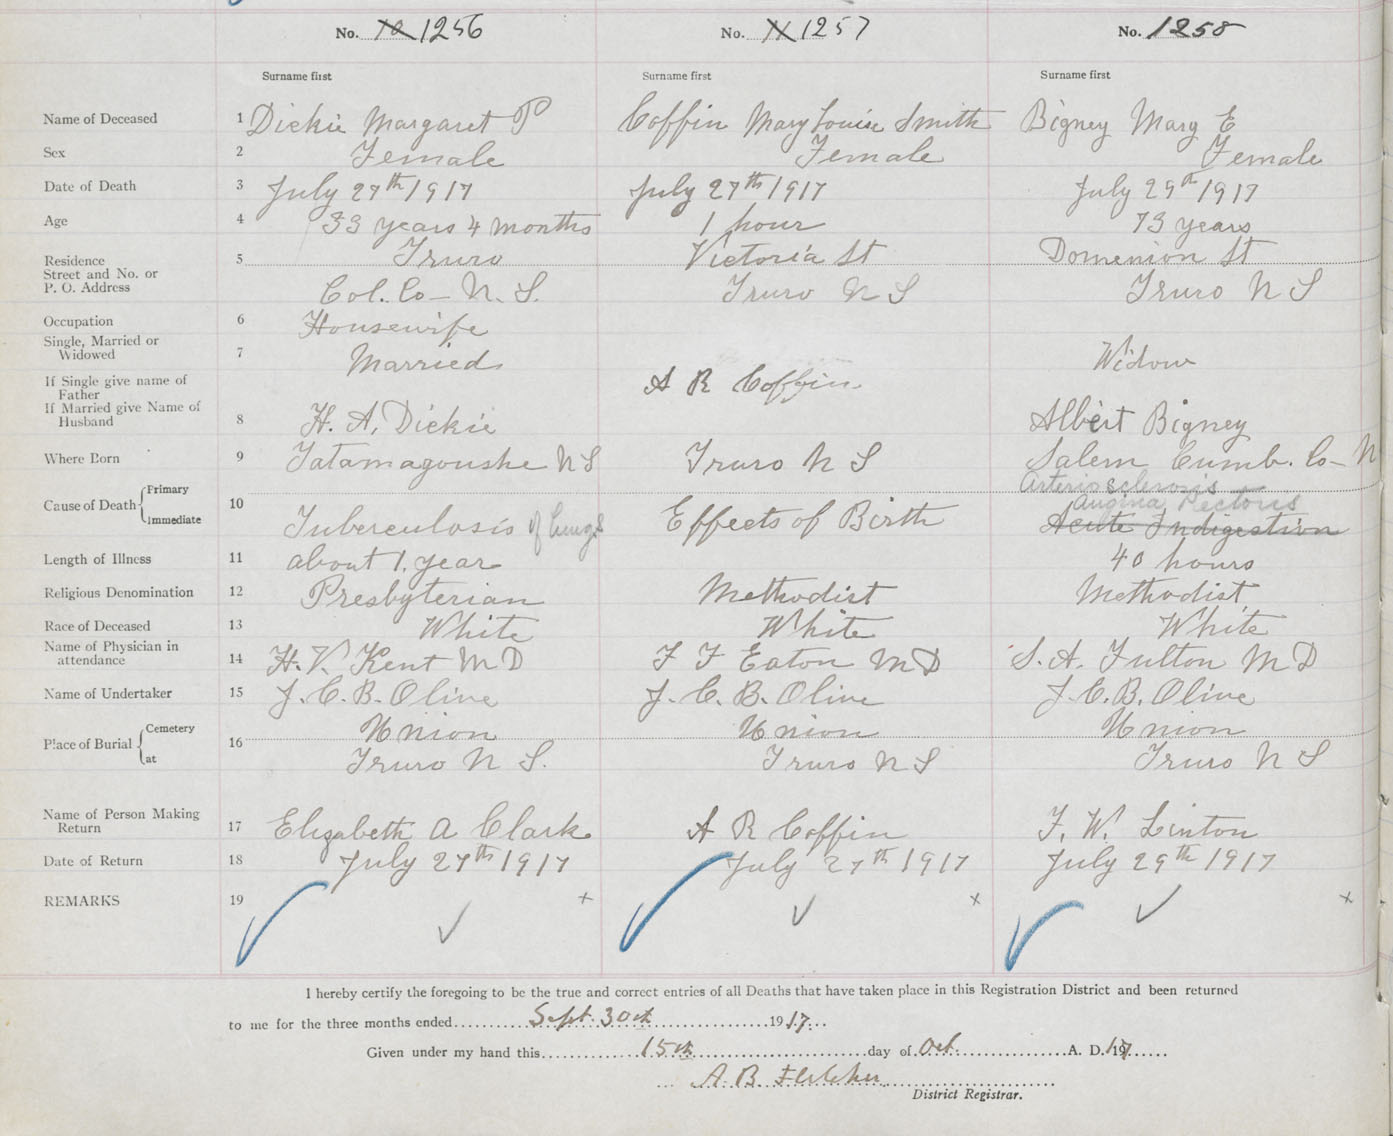 No. 10 1256 No. 11 1257 No. 1258
Surname first Surname first Surname first
Name of Deceased 1 Dickie Margaret P Coffin Mary Louise Smith Bigney Mary E
Sex 2 Female Female Female
Date of Death 3 July 27th 1917 July 27th 1917 July 29th 1917
Age 4 33 years 4 months 1 hour 73 years
Residence 5 Truro Victoria St Domenion St
Street and No. or
P. O. Address Col. Co- N. S. Truro N S Truro N S
Occupation 6 Housewife
Single, Married or
Widowed 7 Married Widow
If Single give name of
Father A R Coffin
If Married give Name of
Husband 8 H. A. Dickie Albert Bigney
Where Born 9 Tatamagoushe N S Truro N S Salem Cumb. Co- N
Cause of Death Primary Arteriosclerosis
10 Angina Pectoris
Immediate Tuberculosis of lungs Effects of Birth Acute Indigestion
Length of Illness 11 about 1, year 40 hours
Religious Denomination 12 Presbyterian Methodist Methodist
Race of Deceased 13 White White White
Name of Physician in
attendance 14 H. V. Kent M D F F Eaton M D S. A. Fulton M D
Name of Undertaker 15 J. C. B. Olive J. C. B. Olive J. C. B. Olive
Place of Burial Cemetery 16 Union Union Union
at Truro N S. Truro N S Truro N S
Name of Person Making
Return 17 Elizabeth A Clark A R Coffin F. W. Linton
Date of Return 18 July 27th 1917 July 27th 1917 July 29th 1917
REMARKS 19 ✓ ✓ x ✓ ✓ x ✓ ✓ x
I hereby certify the foregoing to be the true and correct entries of all Deaths that have taken place in this Registration District and been returned
to me for the three months ended Sept. 30th 1917
Given under my hand this 15th day of Oct. A. D. 1917
A. B. Fletcher
District Registrar.